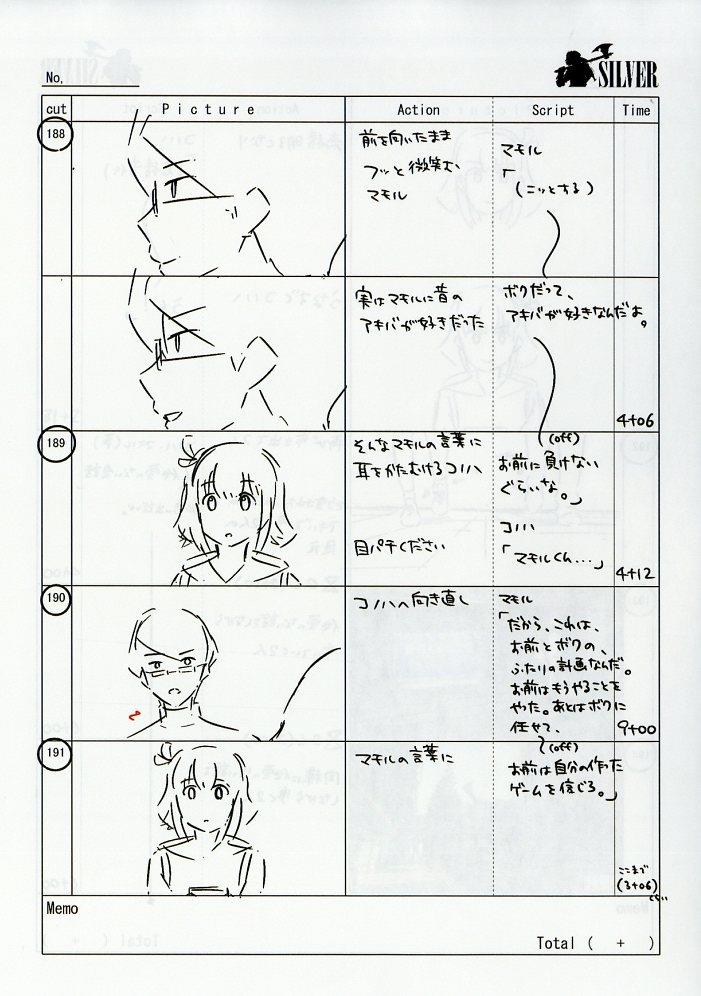 No.
SILVER
cut
Picture
Action
Script
Time
188
前を向いたまま
フッと微笑む
マモル
マモル
「
(ニッとする)
実はマモルに昔の
アキバが好きだった
ボクだって、
アキバが好きなんだよ。
4+06
189
そんなマモルの言葉に
耳をかたむけるコノハ
目パチください
(off)
お前に負けない
ぐらいな。」
コノハ
「マモルくん…」
4+12
190
コノハへ向き直し
マモル
「だから、これは、
お前とボクの、
ふたりの計画なんだ。
お前はもうやることを
やった。あとはボクに
任せて、
9+00
191
マモルの言葉に
(off)
お前は自分の作った
ゲームを信じろ。」
ここまで
(3+06)
くらい
Memo
Total ( + )